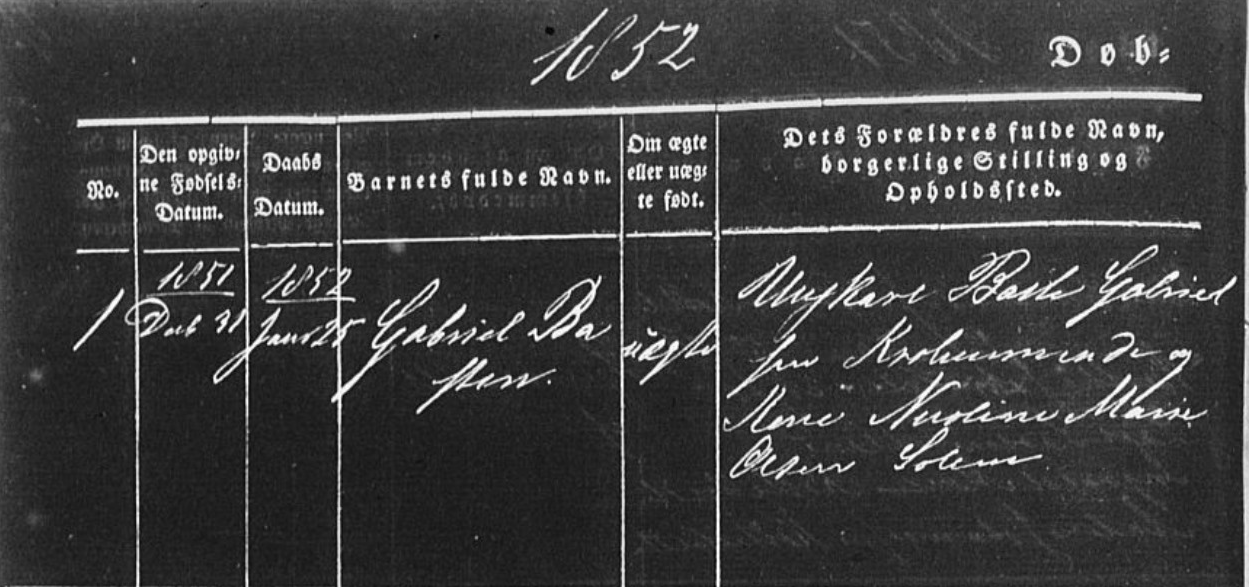 1852
Døb-
No.
Den opgiv-
ne Fødsels-
Datum.
Daabs
Datum.
Barnets fulde Navn.
Om ægte
eller uæg-
te født.
Dets Forældres fulde Navn,
borgerlige Stilling og
Opholdssted.
1
1851
Decb 31
1852
Janr 25
Gabriel Ba
sten.
uægte
Ungkarl Gabriel
og
Marie
Olsen Solem